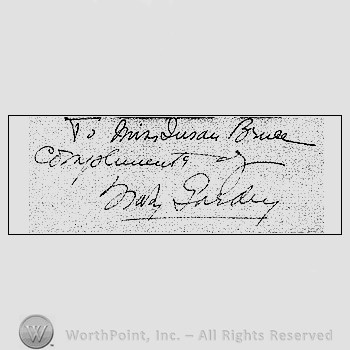 To Miss Susan Bruce
Compliments of
WorthPoint, Inc. – All Rights Reserved